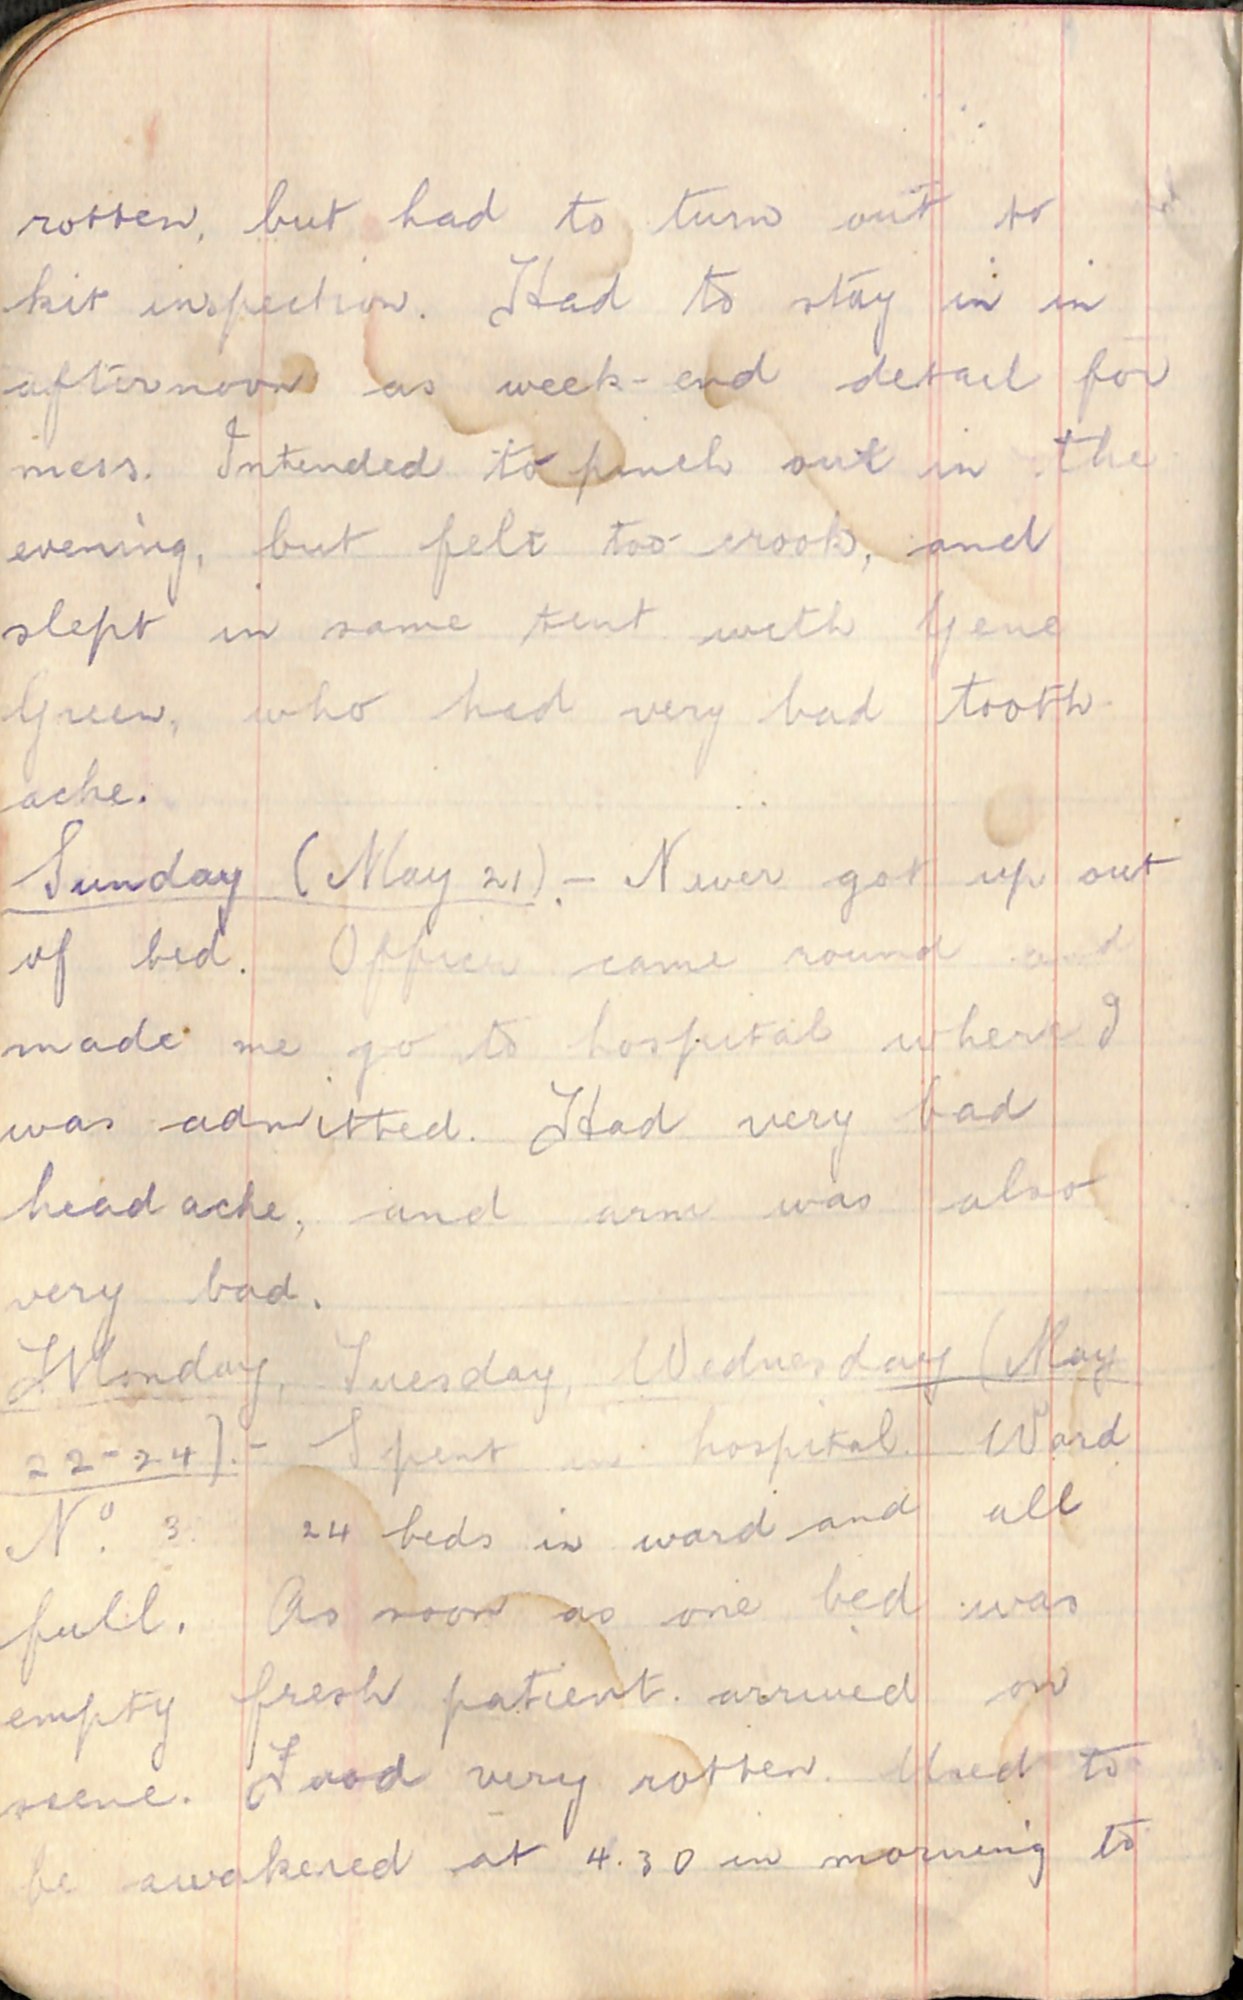 rotten, but had to turn out to
kit inspection. Had to stay in in
afternoon as week-end detail for
mess. Intended to pinch out in the
evening, but felt too crook, and
slept in same tent with Gene
Green, who had very bad tooth-
ache.
Sunday (May 21).- Never got up out
of bed. Officer came round and
made me go to hospital where I
was admitted. Had very bad
headache, and arm was also
very bad.
Monday, Tuesday, Wednesday (May
22-24).- Spent in hospital. Ward
No. 3. 24 beds in ward and all
full. As soon as one bed was
empty fresh patient arrived on
scene. Food very rotten. Used to
be awakened at 4.30 in morning to